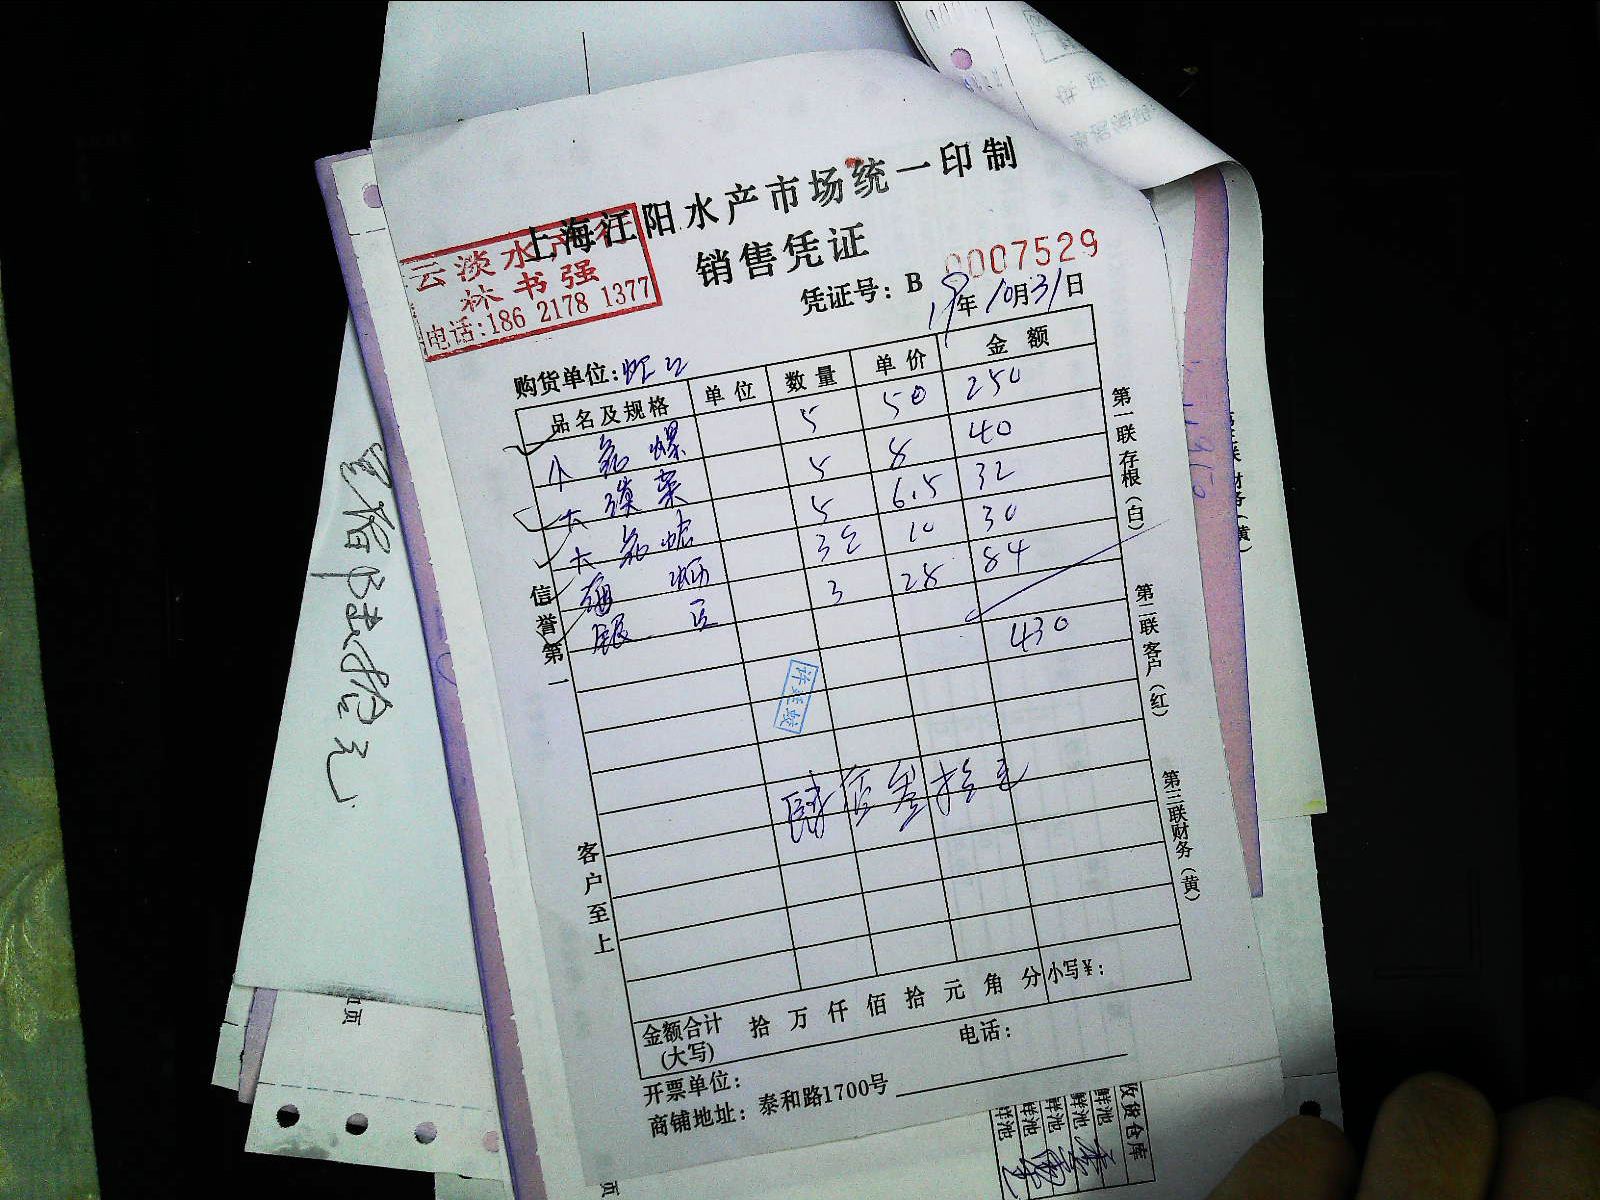 上海江阳水产市场统一印制
销售凭证
凭证号：B 0007529
云淡水产行
林书强
电话:186 2178 1377
19年10月31日
购货单位:虹口
品名及规格 单位 数量 单价 金额
小花螺 5 50 250
大淡菜 5 8 40
大花蛤 5 6.5 32
海蛎 3 10 30
银豆 3 28 84
430
许连蛟
肆佰叁拾元
信誉第一
客户至上
第一联存根(白)
第二联客户(红)
第三联财务(黄)
金额合计(大写) 拾 万 仟 佰 拾 元 角 分 小写¥：
开票单位： 电话：
商铺地址：泰和路1700号
收货仓库
鲜池
鲜池
鲜池
鲜池